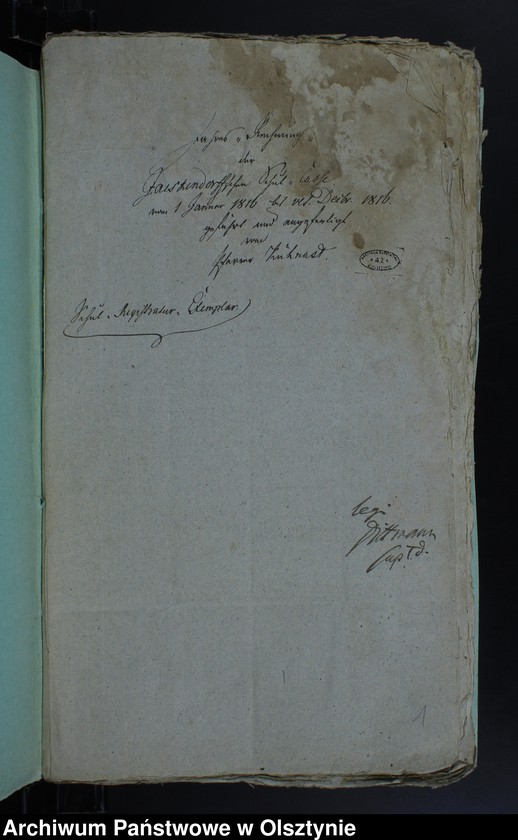 Jahres-Rechnung
der
Schul-Casse
vom 1 Januar 1816 bis ult. Decbr. 1816.
geführt und angefertigt
von
Pfarrer Kühnast.
42
Schul-Registratur-Exemplar
legi
Dittmann
1
Archiwum Państwowe w Olsztynie